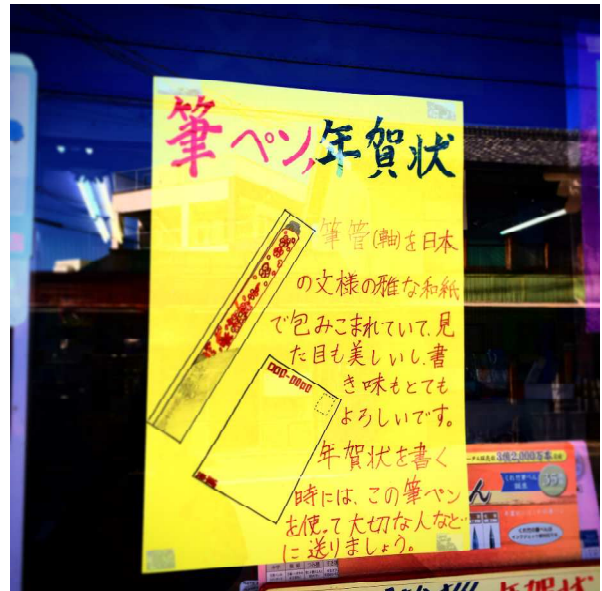 筆ペン,年賀状
筆管(軸)を日本
の文様の雅な和紙
で包みこまれていて、見
た目も美しいし、書
き味もとても
よろしいです。
年賀状を書く
時には、この筆ペン
を使って大切な人など
に送りましょう。
3億2,000万本
くれ竹筆ぺん
年賀状